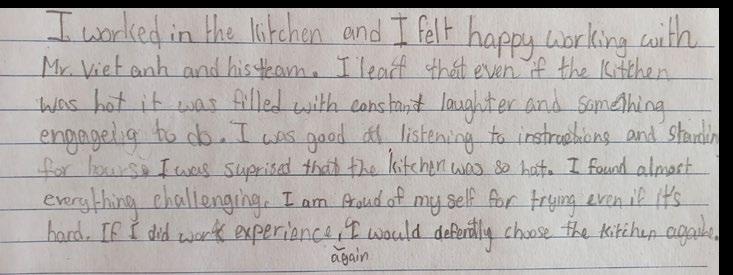 I worked in the kitchen and I felt happy working with
Mr. Viet anh and his team. I leart that even if the kitchen
was hot it was filled with constant laughter and something
engageing to do. I was good at listening to instructions and standin
for hours. I was suprised that the kitchen was so hot. I found almost
everything challenging. I am Proud of my self for trying even if it's
hard. If I did work experience, I would defently choose the kitchen again.
again